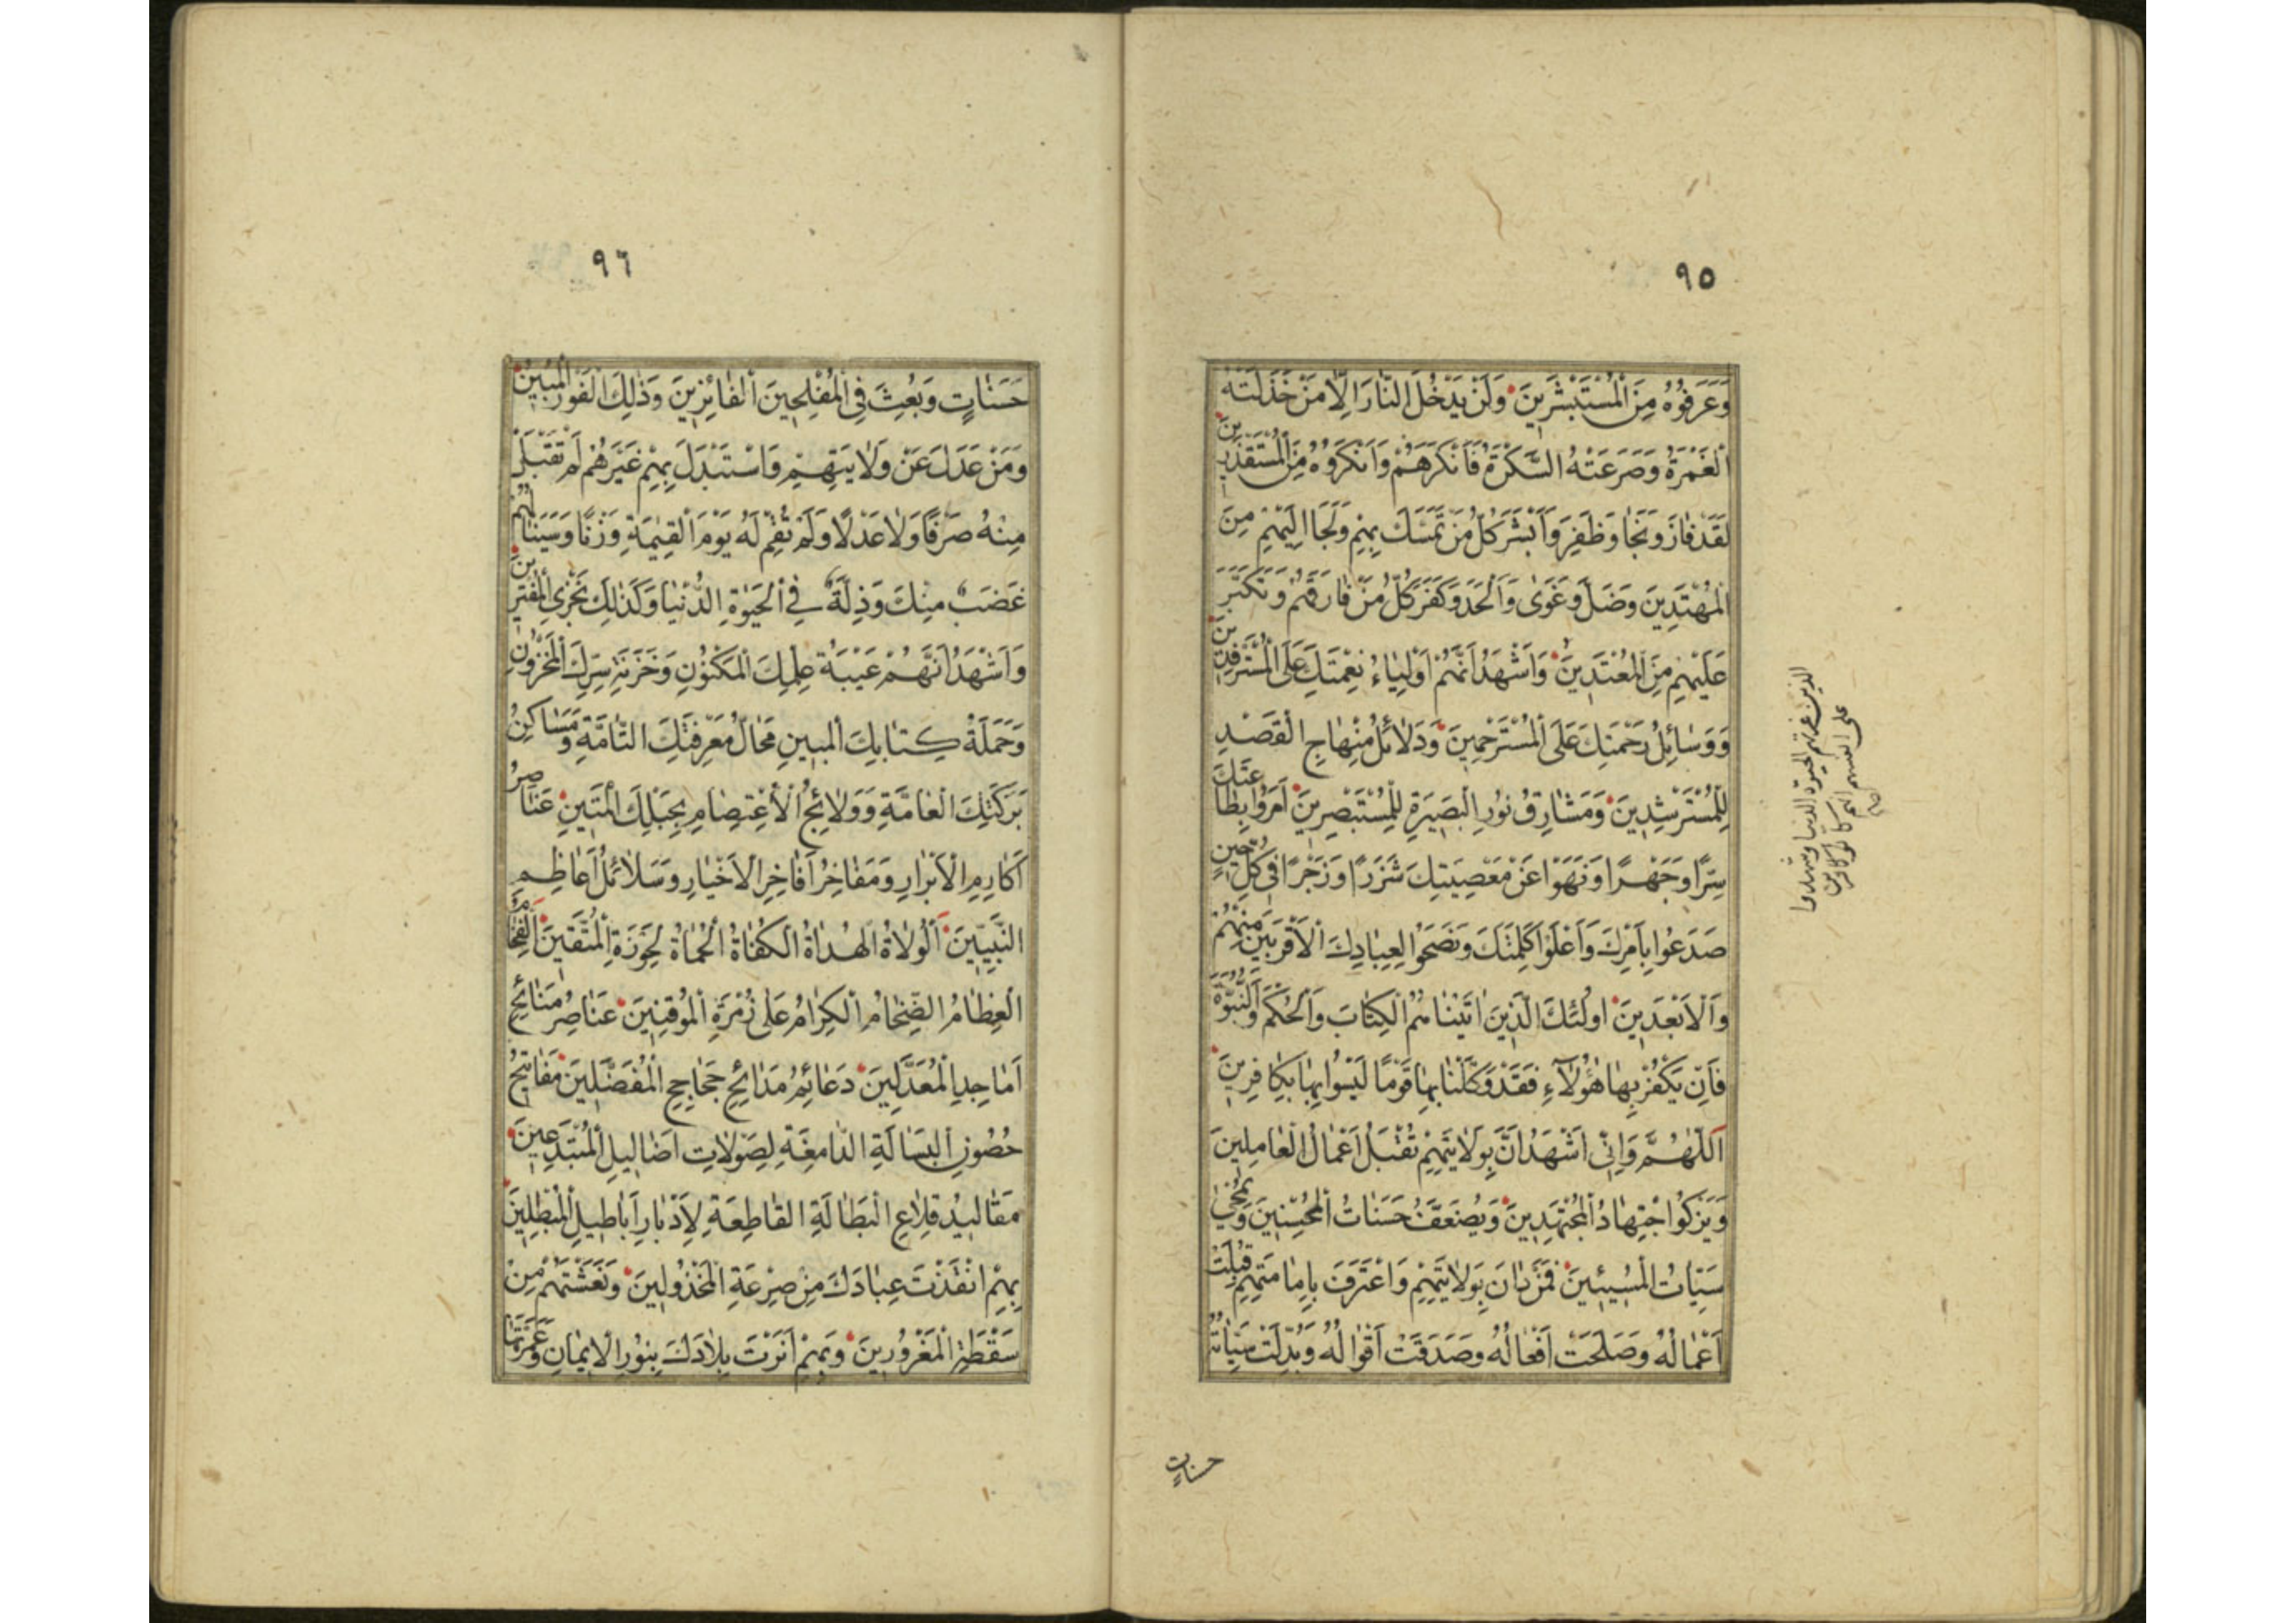 ٩٥
وَعَرَفُوهُ مِنَ الْمُسْتَبْشَرِينَ وَلَنْ يَدْخُلَ النَّارَ اِلَّا مَنْ خَذَلَتْهُ
الْغَمْرَةُ وَصَرَعَتْهُ السَّكْرَةُ فَاَنْكَرَهُمْ وَاَنْكَرُوهُ مِنَ الْمُسْتَقْذَرِينَ
لَقَدْ فَازَ وَنَجَا وَظَفِرَ وَاَبْشَرَ كُلُّ مَنْ تَمَسَّكَ بِهِمْ وَلَجَا اِلَيْهِمْ مِنَ
الْمُهْتَدِينَ وَضَلَّ وَغَوٰى وَاَلْحَدَ وَكَفَرَ كُلُّ مَنْ فَارَقَهُمْ وَتَكَبَّرَ
عَلَيْهِمْ مِنَ الْمُعْتَدِينَ وَاَشْهَدُ اَنَّهُمْ اَوْلِيَاءُ نِعْمَتِكَ عَلَى الْمُسْتَرْفِدِينَ
وَوَسَائِلُ رَحْمَتِكَ عَلَى الْمُسْتَرْحِمِينَ وَدَلَائِلُ مِنْهَاجِ الْقَصْدِ
لِلْمُسْتَرْشِدِينَ وَمَشَارِقُ نُورِ الْبَصِيرَةِ لِلْمُسْتَبْصِرِينَ اَمَرُوا بِطَاعَتِكَ
سِرًّا وَجَهْرًا وَنَهَوْا عَنْ مَعْصِيَتِكَ شَزَرًا وَزَجْرًا فِي كُلِّ حِينٍ
صَدَعُوا بِاَمْرِكَ وَاَعْلَوْا كَلِمَتَكَ وَنَصَحُوا لِعِبَادِكَ الْاَقْرَبِينَ مِنْهُمْ
وَالْاَبْعَدِينَ اُولٰئِكَ الَّذِينَ اٰتَيْنَاهُمُ الْكِتَابَ وَالْحُكْمَ وَالنُّبُوَّةَ
فَاِنْ يَكْفُرْ بِهَا هٰؤُلَآءِ فَقَدْ وَكَّلْنَا بِهَا قَوْمًا لَيْسُوا بِهَا بِكَافِرِينَ
اَللّٰهُمَّ وَاِنِّي اَشْهَدُ اَنَّ بِوَلَايَتِهِمْ تُقْبَلُ اَعْمَالُ الْعَامِلِينَ
وَيَزْكُو اجْتِهَادُ الْمُجْتَهِدِينَ وَيُضَعَّفُ حَسَنَاتُ الْمُحْسِنِينَ وَتُمْحٰى
سَيِّئَاتُ الْمُسِيئِينَ فَمَنْ دَانَ بِوَلَايَتِهِمْ وَاعْتَرَفَ بِاِمَامَتِهِمْ قُبِلَتْ
اَعْمَالُهُ وَصَلَحَتْ اَفْعَالُهُ وَصَدَقَتْ اَقْوَالُهُ وَبُدِّلَتْ سَيِّئَاتُهُ
حسناتٍ
الذين غرتهم الحيوة الدنيا وشهدوا
على انفسهم انهم كانوا كافرين
٩٦
حَسَنَاتٍ وَبُعِثَ فِي الْمُفْلِحِينَ الْفَائِزِينَ وَذٰلِكَ الْفَوْزُ الْمُبِينُ
وَمَنْ عَدَلَ عَنْ وَلَايَتِهِمْ وَاسْتَبْدَلَ بِهِمْ غَيْرَهُمْ لَمْ تَقْبَلْ
مِنْهُ صَرْفًا وَلَا عَدْلًا وَلَمْ تُقِمْ لَهُ يَوْمَ الْقِيٰمَةِ وَزْنًا وَسَيَنَالُهُمْ
غَضَبٌ مِنْكَ وَذِلَّةٌ فِي الْحَيٰوةِ الدُّنْيَا وَكَذٰلِكَ نَجْزِي الْمُفْتَرِينَ
وَاَشْهَدُ اَنَّهُمْ عَيْبَةُ عِلْمِكَ الْمَكْنُونِ وَخَزَنَةُ سِرِّكَ الْمَخْزُونِ
وَحَمَلَةُ كِتَابِكَ الْمُبِينِ مَحَالُّ مَعْرِفَتِكَ التَّامَّةِ وَمَسَاكِنُ
بَرَكَتِكَ الْعَامَّةِ وَوَلَائِجُ الْاِعْتِصَامِ بِحَبْلِكَ الْمَتِينِ عَنَاصِرُ
اَكَارِمِ الْاَبْرَارِ وَمَفَاخِرُ اَفَاخِرِ الْاَخْيَارِ وَسَلَائِلُ اَعَاظِمِ
النَّبِيِّينَ اَلْوُلَاةُ الْهُدَاةُ الْكُفَاةُ الْحُمَاةُ لِحَوْزَةِ الْمُتَّقِينَ الْفِخَامُ
الْعِظَامُ الضِّخَامُ الْكِرَامُ عَلٰى زُمْرَةِ الْمُوقِنِينَ عَنَاصِرُ مَنَائِحِ
اَمَاجِدِ الْمُعَدَّلِينَ دَعَائِمُ مَدَائِحِ جَحَاجِحِ الْمُفَضَّلِينَ مَفَاتِيحُ
حُصُونِ الْبَسَالَةِ الدَّامِغَةِ لِصَوْلَاتِ اَضَالِيلِ الْمُبْتَدِعِينَ
مَقَالِيدُ قِلَاعِ الْبَطَالَةِ الْقَاطِعَةِ لِاَدْبَارِ اَبَاطِيلِ الْمُبْطِلِينَ
بِهِمْ اَنْقَذْتَ عِبَادَكَ مِنْ صِرْعَةِ الْمَخْذُولِينَ وَنَعَشْتَهُمْ مِنْ
سَقْطَةِ الْمَغْرُورِينَ وَبِهِمْ اَنَرْتَ بِلَادَكَ بِنُورِ الْاِيمَانِ وَعَمَرْتَهَا